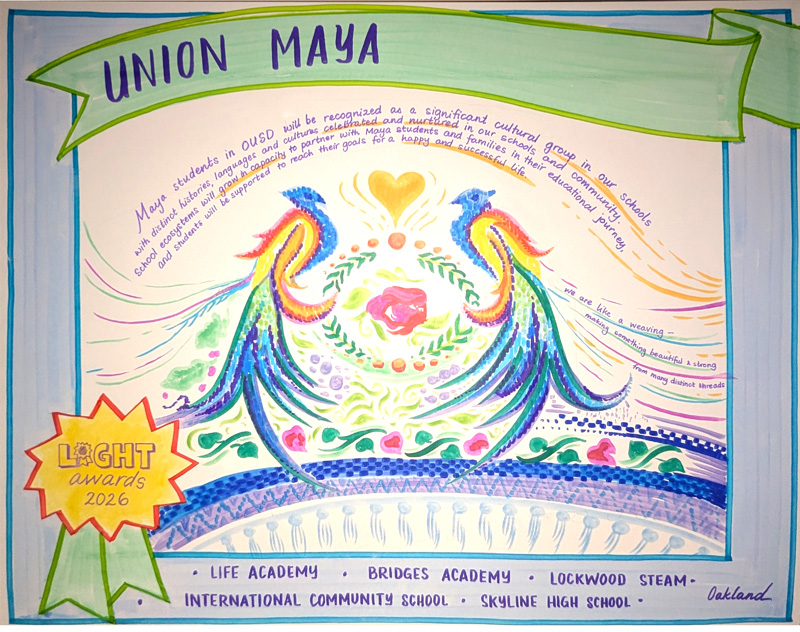 UNION MAYA
Maya students in OUSD will be recognized as a significant cultural group in our schools
with distinct histories, languages and cultures celebrated and nurtured in our schools and community.
School ecosystems will grow capacity to partner with Maya students and families in their educational journey,
and students will be supported to reach their goals for a happy and successful life.
we are like a weaving —
making something beautiful & strong
from many distinct threads
LIGHT
awards
2026
• LIFE ACADEMY • BRIDGES ACADEMY • LOCKWOOD STEAM •
• INTERNATIONAL COMMUNITY SCHOOL • SKYLINE HIGH SCHOOL •
Oakland